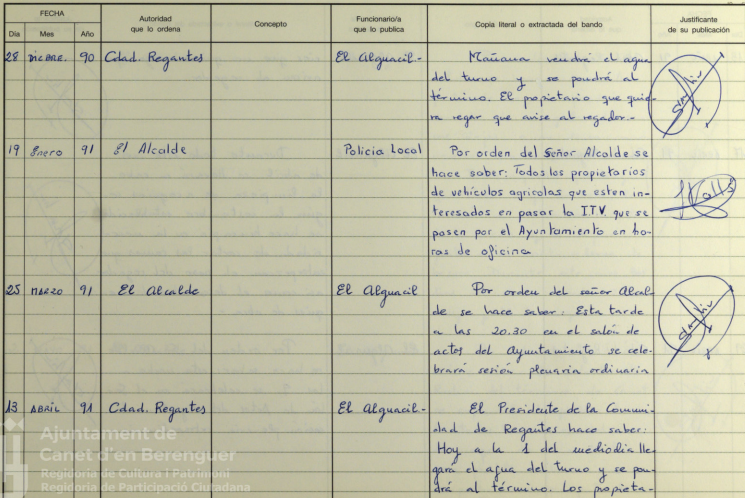 FECHA
Día Mes Año
Autoridad
que lo ordena
Concepto
Funcionario/a
que lo publica
Copia literal o extractada del bando
Justificante
de su publicación
28 DICBRE. 90 Cdad. Regantes El Alguacil.- Mañana vendrá el agua
del turno y se pondrá al
término. El propietario que quie-
ra regar que avise al regador.-
19 Enero 91 El Alcalde Policia Local Por orden del Señor Alcalde se
hace saber: Todos los propietarios
de vehículos agricolas que esten in-
teresados en pasar la I.T.V. que se
pasen por el Ayuntamiento en ho-
ras de oficina
25 MARZO 91 El Alcalde El Alguacil Por orden del señor Alcal-
de se hace saber: Esta tarde
a las 20.30 en el salón de
actos del Ayuntamiento se cele-
brará sesión plenaria ordinaria
13 ABRIL 91 Cdad. Regantes El Alguacil.- El Presidente de la Comuni-
dad de Regantes hace saber:
Hoy a la 1 del mediodia lle-
gará el agua del turno y se pon-
drá al término. Los propieta-
Ajuntament de
Canet d'en Berenguer
Regidoria de Cultura i Patrimoni
Regidoria de Participació Ciutadana